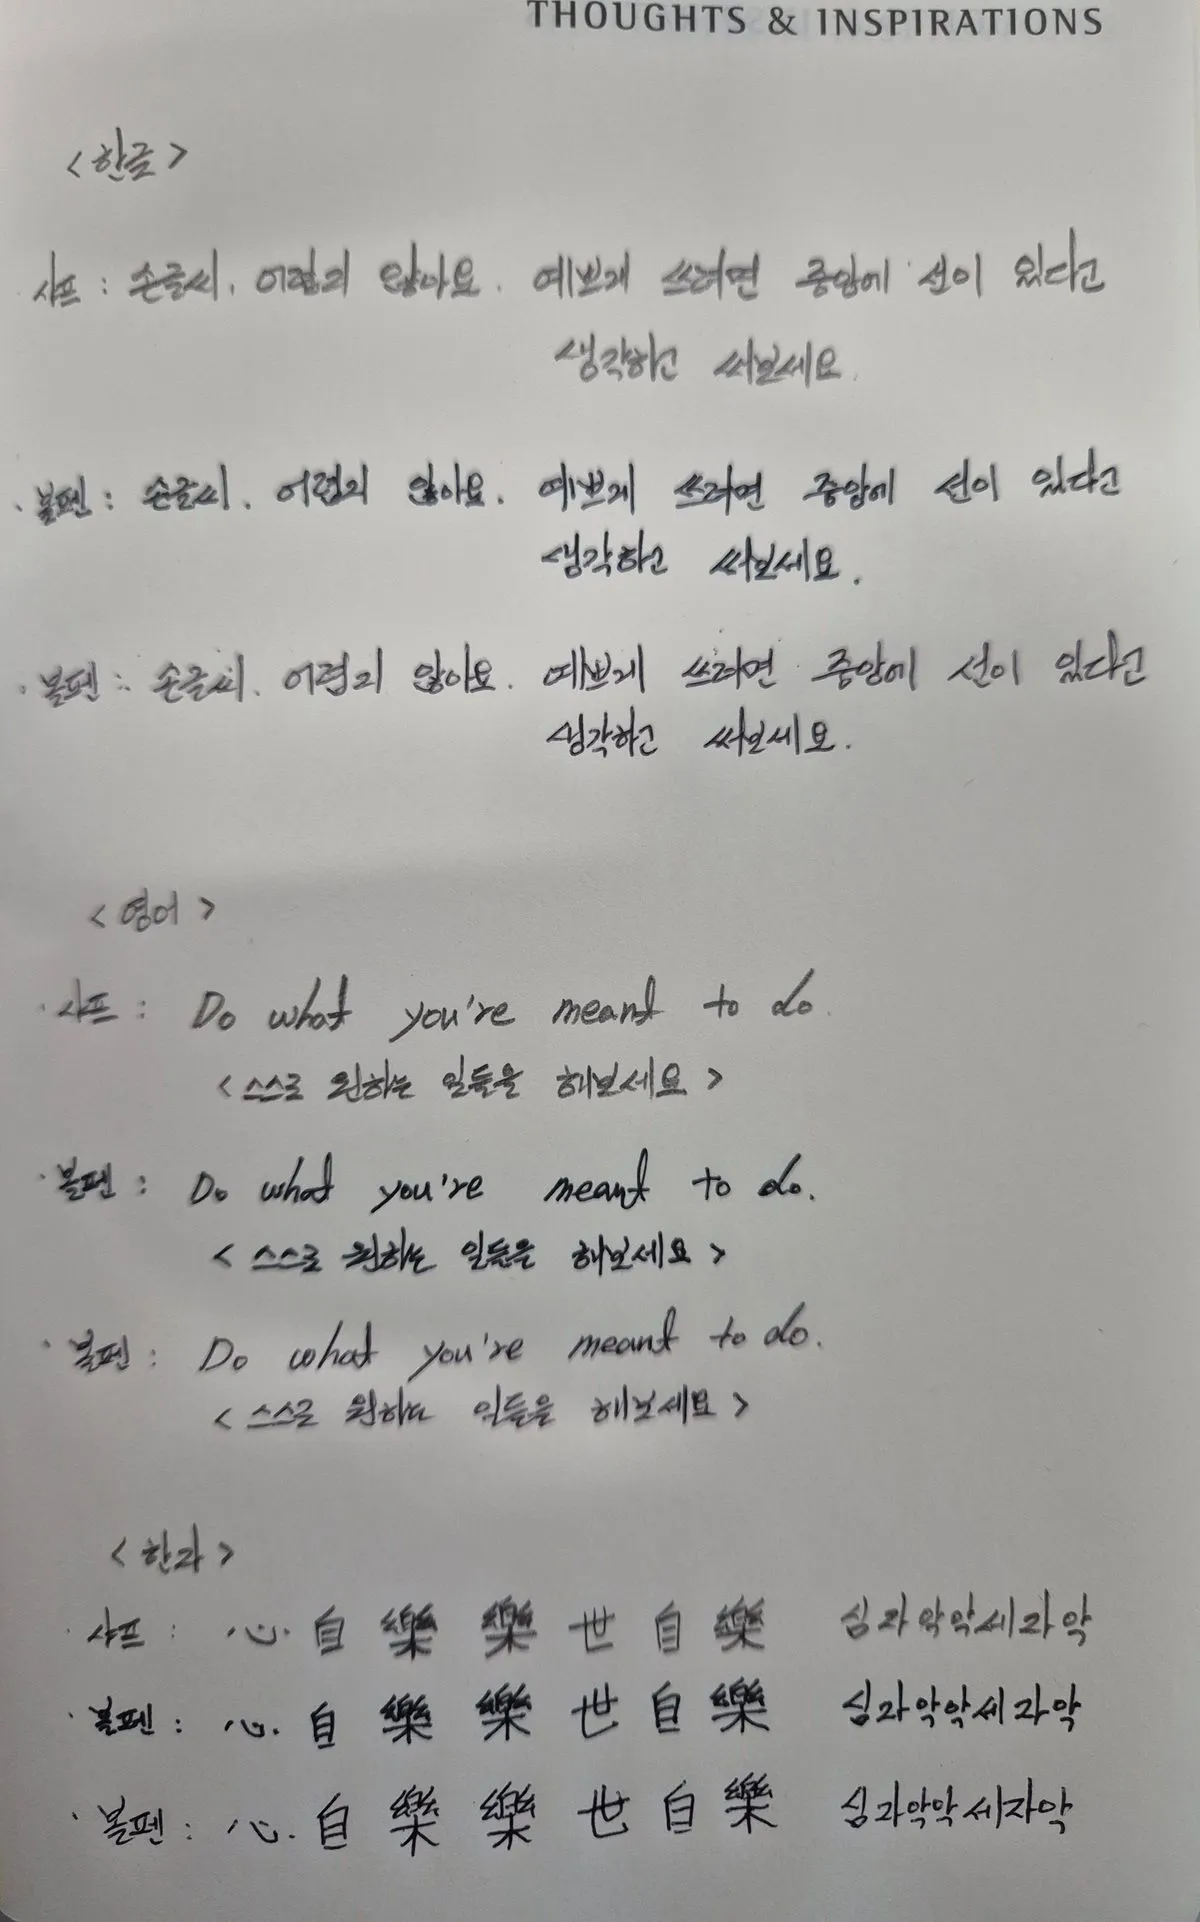 THOUGHTS & INSPIRATIONS
<한글>
샤프 : 손글씨. 어렵지 않아요. 예쁘게 쓰려면 중앙에 선이 있다고
생각하고 써보세요.
· 볼펜 : 손글씨. 어렵지 않아요. 예쁘게 쓰려면 중앙에 선이 있다고
생각하고 써보세요.
· 볼펜 : 손글씨. 어렵지 않아요. 예쁘게 쓰려면 중앙에 선이 있다고
생각하고 써보세요.
<영어>
· 샤프 : Do what you're meant to do.
<스스로 원하는 일들을 해보세요>
· 볼펜 : Do what you're meant to do.
<스스로 원하는 일들을 해보세요>
· 볼펜 : Do what you're meant to do.
<스스로 원하는 일들을 해보세요>
<한자>
· 샤프 : 心. 自 樂 樂 世 自 樂 심자악악세자악
· 볼펜 : 心. 自 樂 樂 世 自 樂 심자악악세자악
· 볼펜 : 心. 自 樂 樂 世 自 樂 심자악악세자악